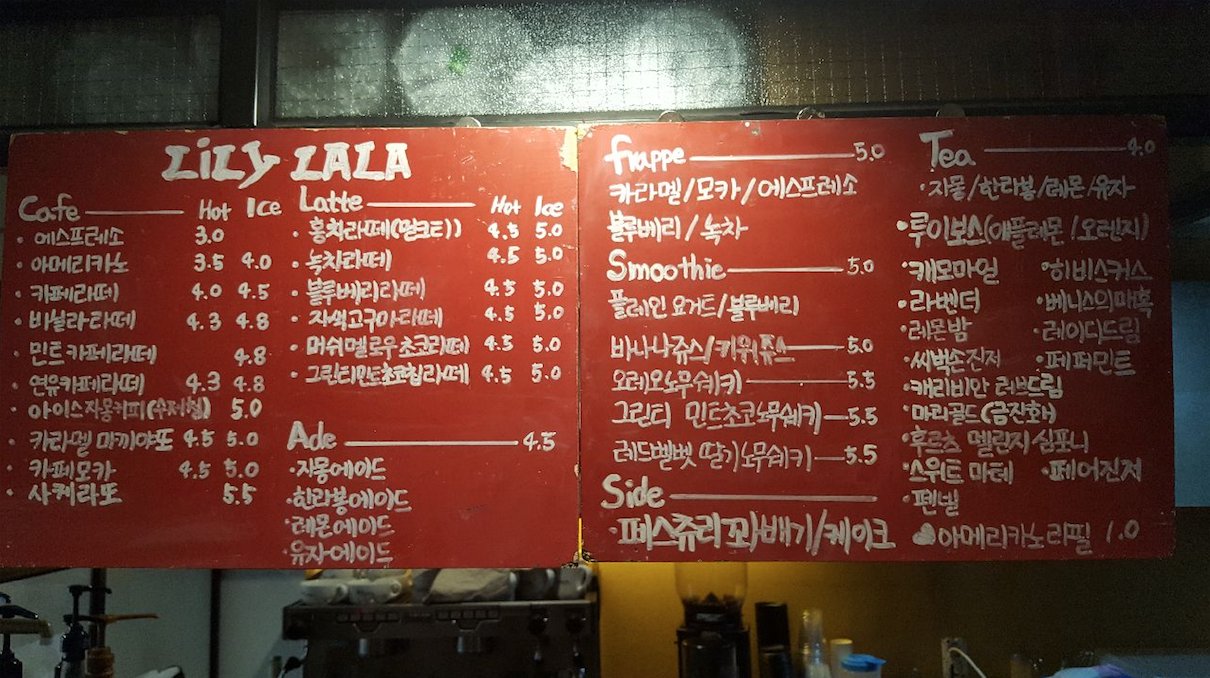 LiLy LALA
Cafe Hot Ice
· 에스프레소 3.0
· 아메리카노 3.5 4.0
· 카페라떼 4.0 4.5
· 바닐라라떼 4.3 4.8
· 민트카페라떼 4.8
· 연유카페라떼 4.3 4.8
· 아이스자몽커피(수제청) 5.0
· 카라멜 마끼야또 4.5 5.0
· 카페모카 4.5 5.0
· 사케라또 5.5
Latte Hot Ice
· 홍차라떼(밀크티) 4.5 5.0
· 녹차라떼 4.5 5.0
· 블루베리라떼 4.5 5.0
· 자색고구마라떼 4.5 5.0
· 머쉬멜로우초코라떼 4.5 5.0
· 그린티민트초코칩라떼 4.5 5.0
Ade 4.5
·자몽에이드
·한라봉에이드
·레몬에이드
·유자에이드
frappe 5.0
카라멜/모카/에스프레소
블루베리/녹차
Smoothie 5.0
플레인 요거트/블루베리
바나나쥬스/키위쥬스 5.0
오레오노무쉬키 5.5
그린티 민트초코노무쉬키 5.5
레드벨벳 딸기노무쉬키 5.5
Side
·페스츄리꽈배기/케이크
Tea 4.0
·자몽/한라봉/레몬/유자
·루이보스(애플레몬/오렌지)
·캐모마일 ·히비스커스
·라벤더 ·베니스의매혹
·레몬밤 ·레이디드림
·씨벅손진저 ·페퍼민트
·캐리비안 러브드림
·마리골드(금잔화)
·후르츠 멜란지 심포니
·스위트 마테 ·페어진저
·펜넬
♥아메리카노리필 1.0